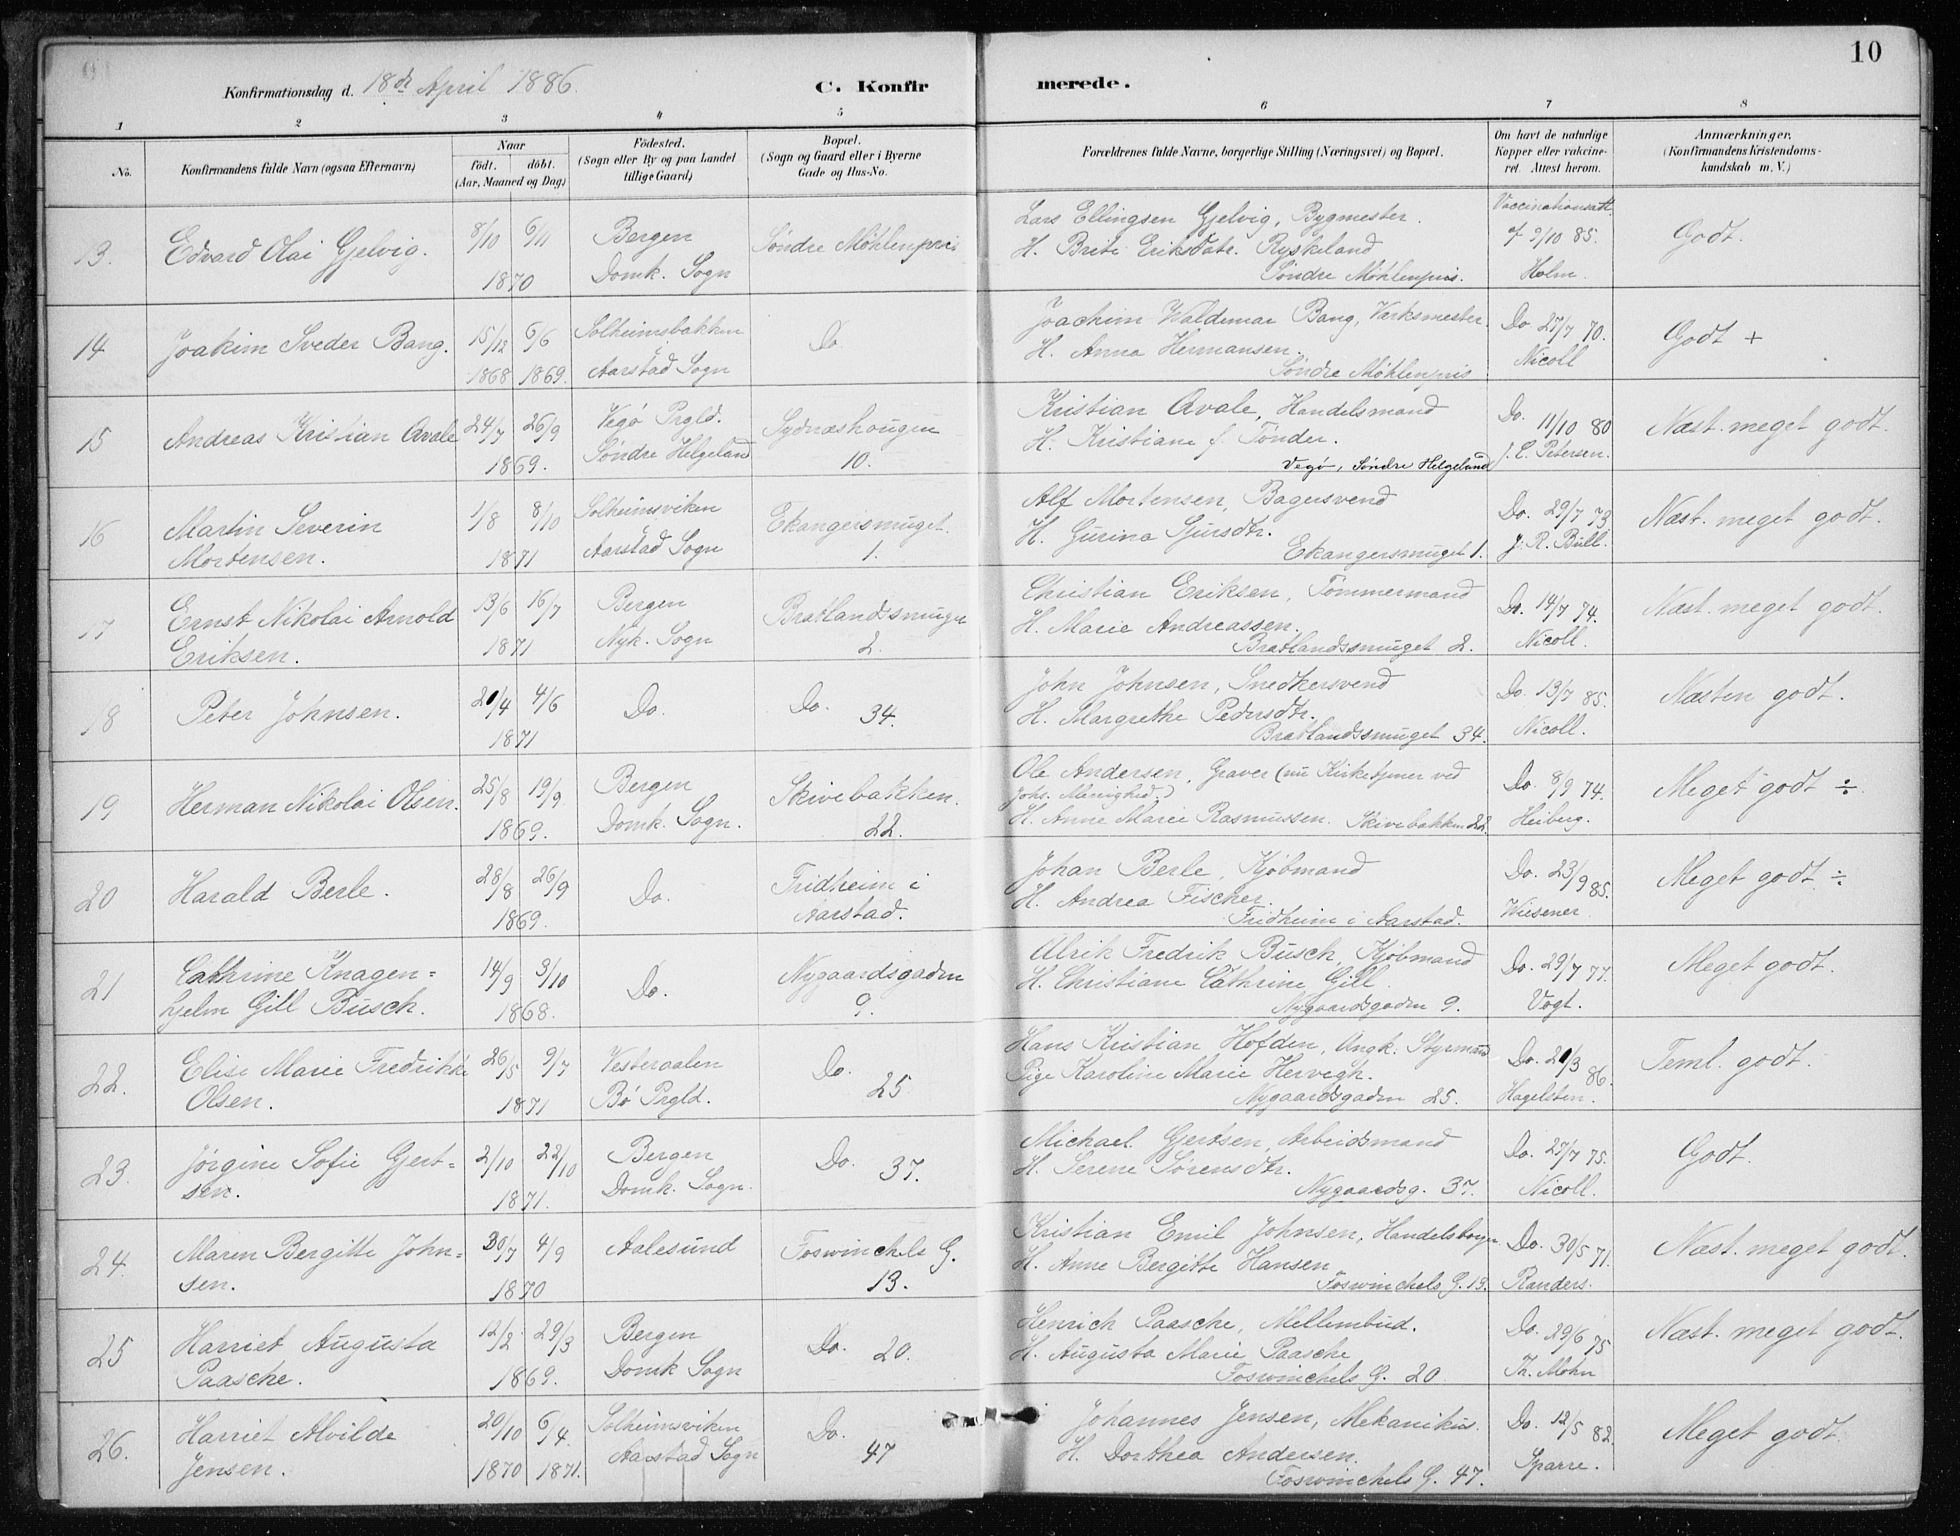 10
Konfirmationsdag d. 18de April 1886.
C. Konfirmerede.
1 2 3 4 5 6 7 8
No.
Konfirmandens fulde Navn (ogsaa Efternavn)
Naar
födt. döbt.
(Aar, Maaned og Dag)
Födested.
(Sogn eller By og paa Landet
tillige Gaard)
Bopæl.
(Sogn og Gaard eller i Byerne
Gade og Hus-No.
Forældrenes fulde Navne, borgerlige Stilling (Næringsvei) og Bopæl.
Om havt de naturlige
Kopper eller vakcine-
ret. Attest herom.
Anmærkninger.
(Konfirmandens Kristendoms-
kundskab m.V.)
13. Edvard Olai Gjelvig. 8/10 6/11 1870
Bergen
Domk. Sogn
Søndre Möhlenpris
Lars Ellingsen Gjelvig, Bygmester.
H. Brite Eriksdatr. Ryskeland
Søndre Möhlenpris.
Vaccinationsatt.
af 9/10 85.
Holm.
Godt.
14 Joakim Sveder Bang. 15/12 1868 6/6 1869.
Solheimsbakken
Aarstad Sogn
Do.
Joachim Waldemar Bang, Verksmester.
H. Anna Hermansen.
Søndre Möhlenpris
Do 27/7 70.
Nicoll
Godt +
15 Andreas Kristian Avale 24/7 26/9 1869.
Vegø Prgld.
Søndre Helgeland
Sydnæshougen
10.
Kristian Avale, Handelsmand
H. Kristiane f. Tønder.
Vegø, Søndre Helgeland
Do. 11/10 80
J. C. Petersen.
Næst. meget godt.
16 Martin Severin
Mortensen. 1/8 8/10 1871
Solheimsviken
Aarstad Sogn
Ekangersmuget.
1.
Alf Mortensen, Bagersvend
H. Gurina Sjursdtr.
Ekangersmuget 1.
Do. 29/7 73.
J. R. Bull.
Næst. meget godt.
17 Ernst Nikolai Arnold
Eriksen. 13/6 16/7 1871
Bergen
Nyk. Sogn
Bratlandsmuget
2.
Christian Eriksen, Tömmermand
H. Marie Andreassen.
Bratlandssmuget 2.
Do. 14/7 74.
Nicoll.
Næst. meget godt.
18 Peter Johnsen. 21/4 4/6 1871
Do.
Do. 34.
John Johnsen, Snedkersvend
H. Margrethe Pedersdtr.
Bratlandssmuget 34.
Do. 13/7 85.
Nicoll.
Næsten godt.
19 Herman Nikolai Olsen. 25/8 19/9. 1869.
Bergen
Domk. Sogn.
Skivebakken.
22.
Ole Andersen, Graver (nu Kirketjener ved
Johs. Menighed.)
H. Anne Marie Rasmussen. Skivebakken 22.
Do. 8/9 74.
Heiberg.
Meget godt ÷
20 Harald Berle. 28/8 26/9 1869.
Do.
Fridheim i
Aarstad.
Johan Berle, Kjöbmand
H. Andrea Fischer.
Fridheim i Aarstad.
Do. 23/9 85.
Wiesener
Meget godt ÷
21 Cathrine Knagen=
hjelm Gill Busch. 14/9 3/10 1868.
Do.
Nygaardsgaden
9.
Ulrik Fredrik Busch, Kjöbmand
H. Christiane Cathrine Gill.
Nygaardsgaden 9.
Do. 29/7 77.
Vogt.
Meget godt.
22. Elise Marie Fredrikke
Olsen. 26/5 9/7 1871
Vesteraalen
Bö Prgld.
Do. 25.
Hans Kristian Hofden, Ungk. Styrmand
Pige Karoline Marie Hervegh.
Nygaardsgaden 25.
Do. 21/3 86.
Hagelsten.
Teml. godt.
23. Jörgine Sofie Gjert=
sen. 2/10 22/10 1871.
Bergen
Domk. Sogn.
Do. 37.
Michael Gjertsen, Arbeidsmand
H. Serene Sørensdtr.
Nygaardsg. 37.
Do. 27/7 75.
Nicoll.
Godt.
24. Maren Bergitte John=
sen. 30/7 4/9 1870
Aalesund
Foswinchels G.
13.
Kristian Emil Johnsen, Handelsborger
H. Anne Bergitte Hansen
Foswinchels G. 13.
Do. 30/5 71.
Randers.
Næst. meget godt.
25 Harriet Augusta
Paasche. 12/2 29/3 1869.
Bergen
Domk Sogn
Do. 20.
Henrich Paasche, Mellembud.
H. Augusta Marie Paasche
Foswinchels G. 20
Do. 29/6 75
Th. Mohn
Næst. meget godt.
26. Harriet Alvilde
Jensen. 20/10 1870 6/4. 1871.
Solheimsviken
Aarstad Sogn
Do. 47
Johannes Jensen, Mekanikus.
H. Dorthea Andersen.
Foswinchels G. 47.
Do. 12/5 82.
Sparre.
Meget godt.